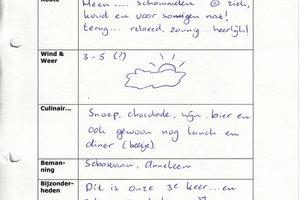 Route
Heen .... schommelen ☺ ziek,
koud en voor sommigen nat!
terug... relaxed, zonnig... heerlijk!
Wind & Weer
3 - 5 (?)
Culinair...
Snoep, chocolade, wijn, bier en
ook gewoon nog lunch en
diner (beetje).
Beman-
ning
Sebastiaan, Annelien
Bijzonder-
heden
Dit is onze 3e keer...en